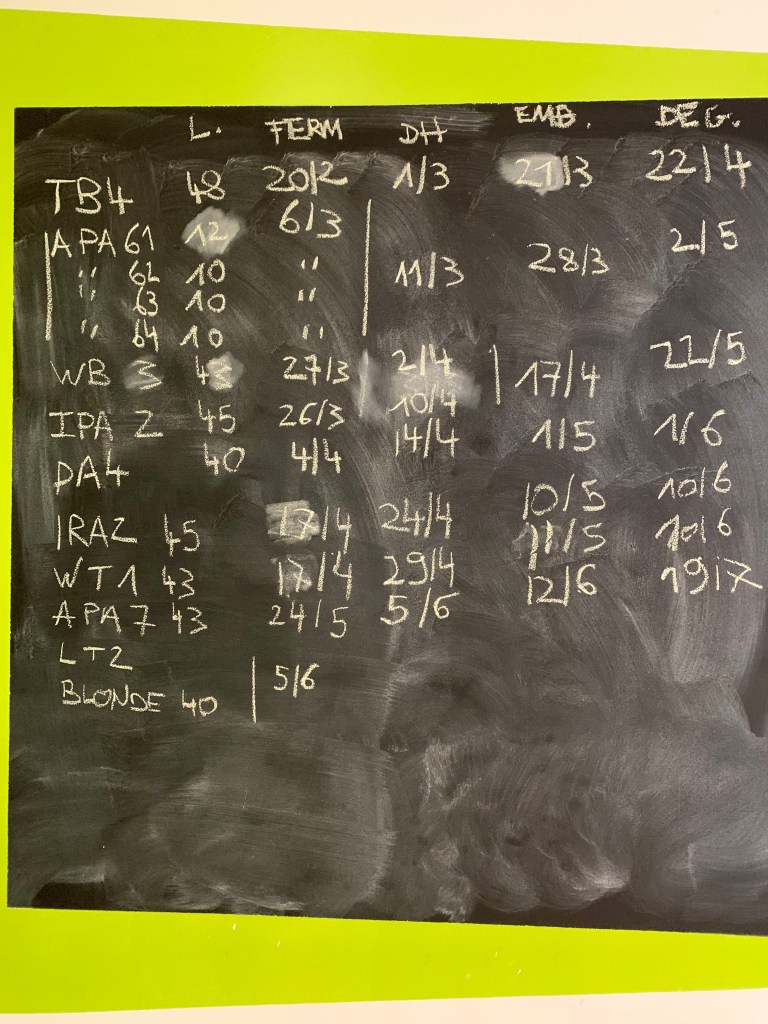 L. FERM DH EMB. DEG.
TB4 48 20/2 1/3 21/3 22/4
APA 61 12 6/3 2/5
" 62 10 " 11/3 28/3
" 63 10 "
" 64 10 "
WB 3 43 27/3 2/4 17/4 22/5
IPA 2 45 26/3 10/4
DA4 40 4/4 14/4 1/5 1/6
IRA2 45 17/4 24/4 10/5 10/6
WT1 43 17/4 29/4 11/5 10/6
APA7 43 24/5 5/6 12/6 19/7
LT2
BLONDE 40 5/6